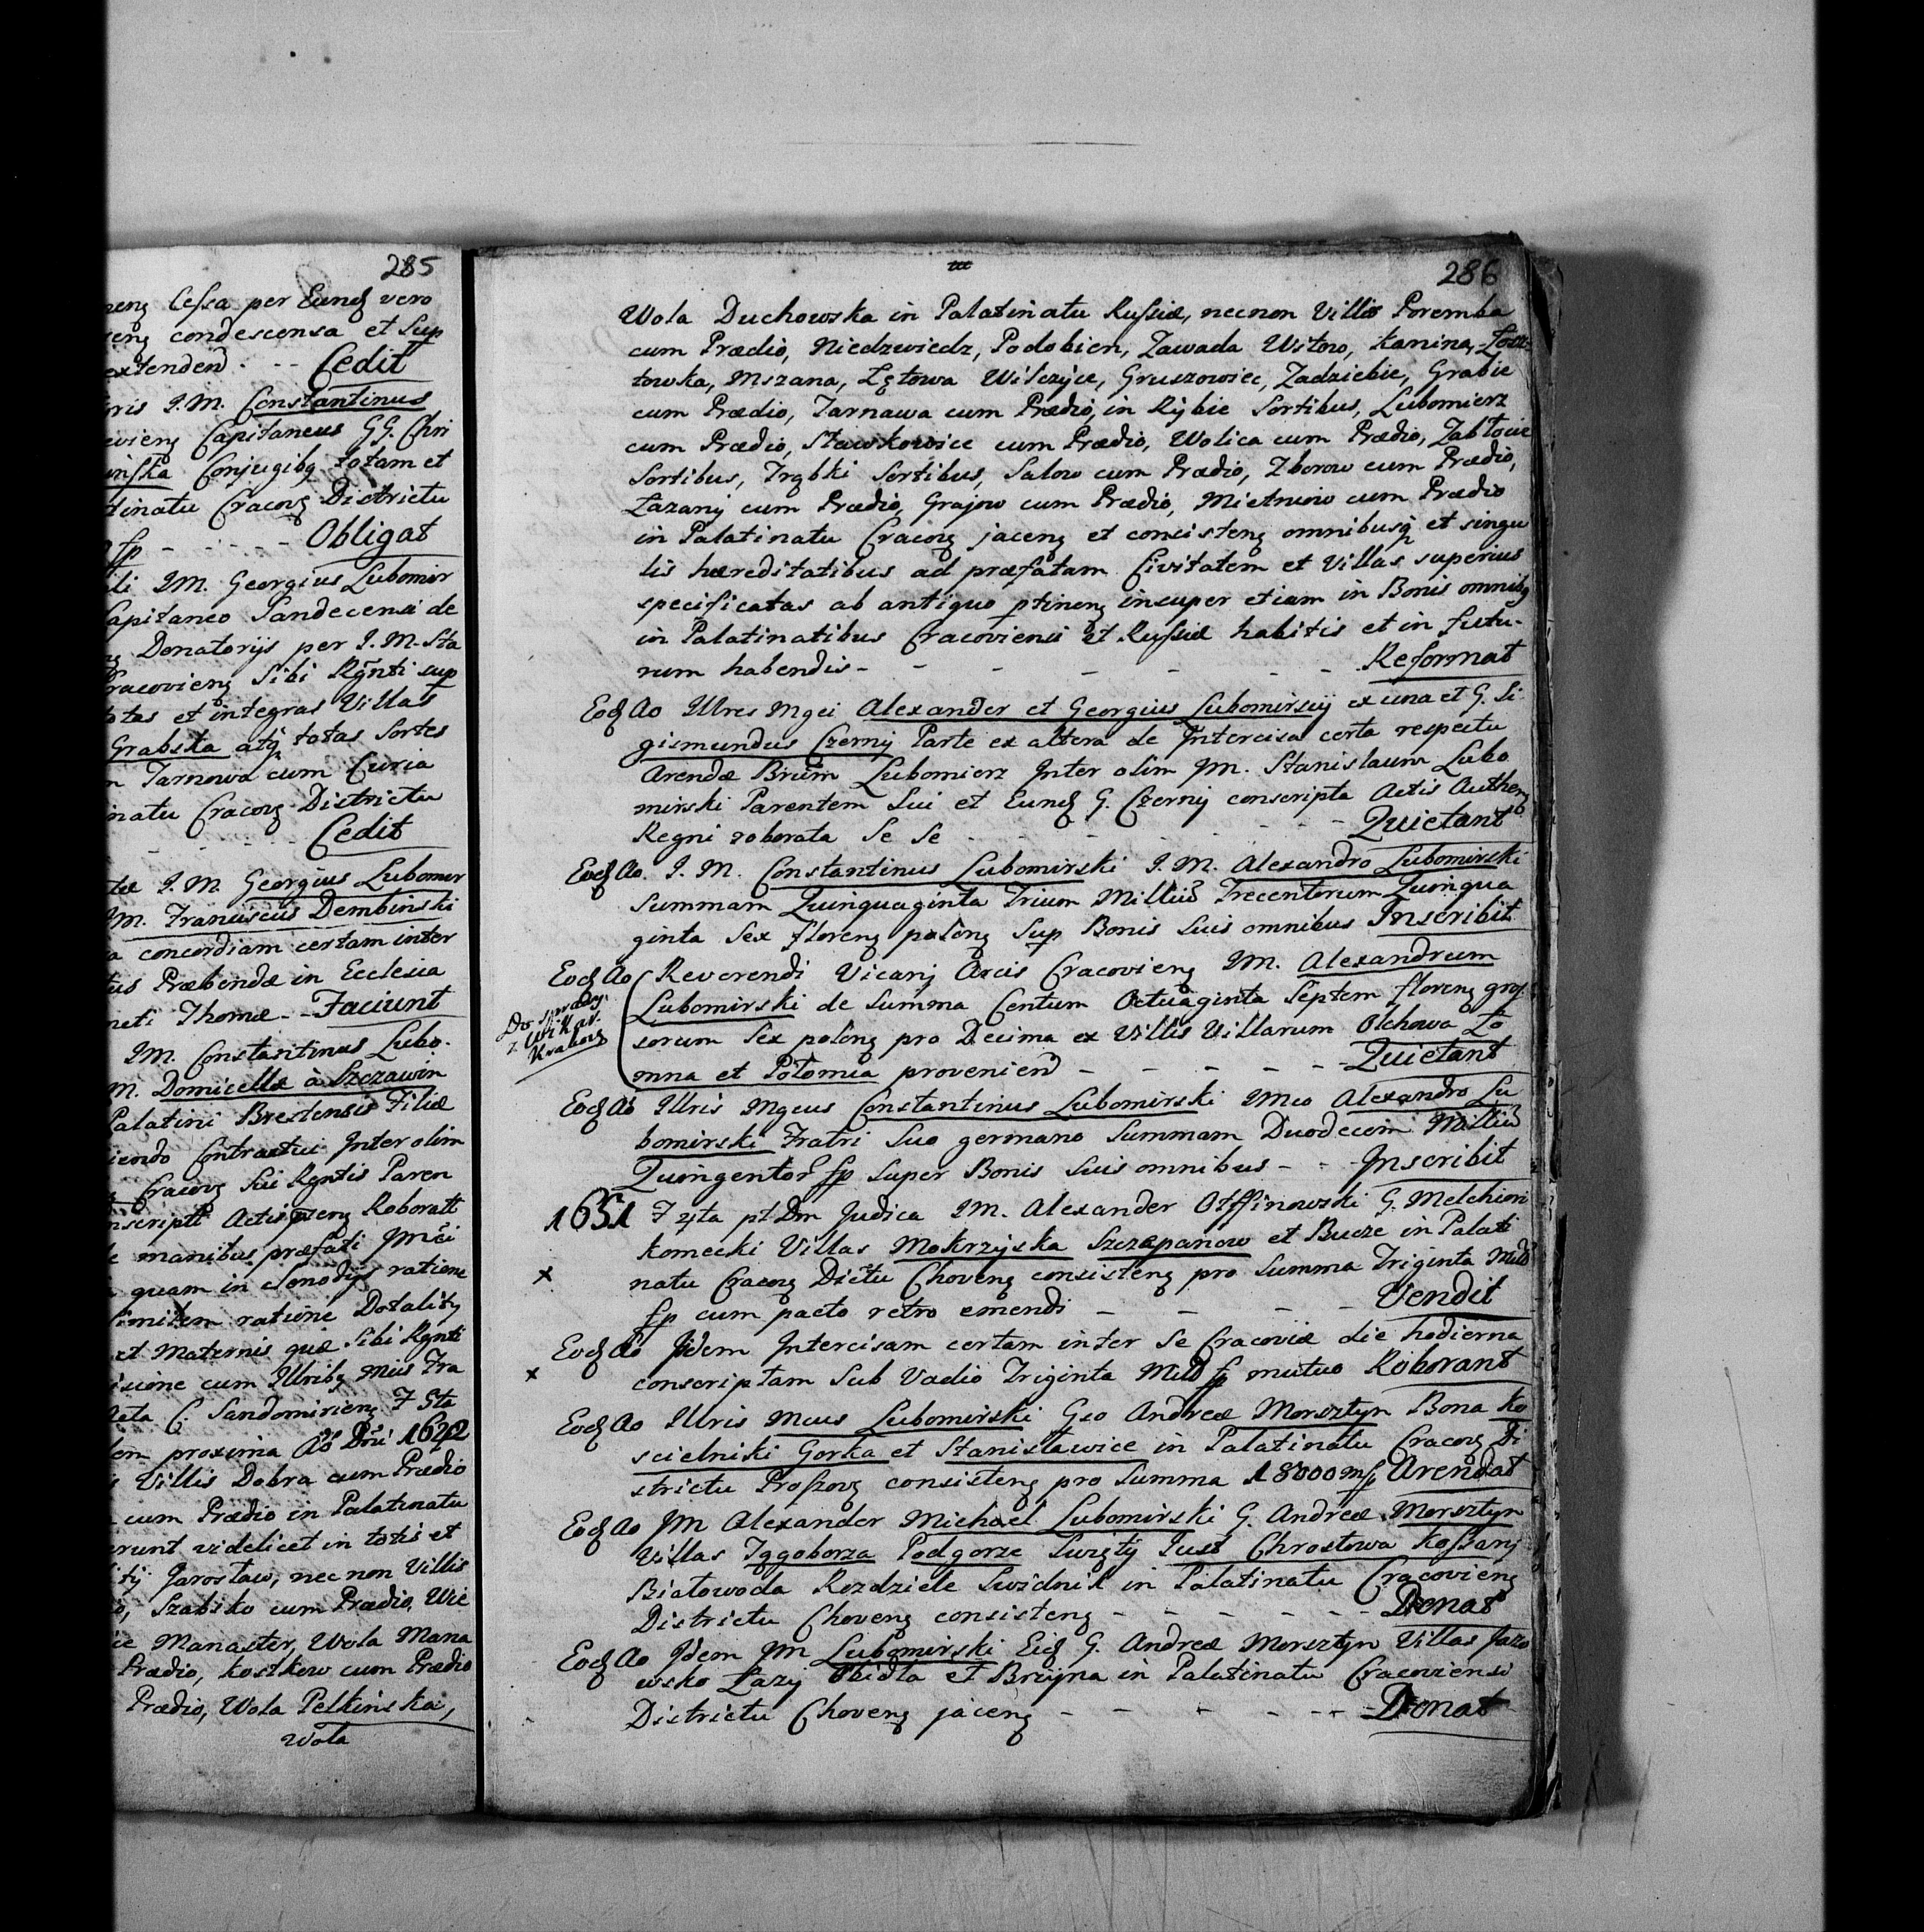 285
Cessa per Eund vero
condescensa et Sup
extendend. - - Cedit
I.M. Constantinus
Capitaneus GG. Chri
Conjugibq totam et
Cracovg Districtu
fp - - - - - Obligat
IM. Georgius Lubomir
Capitaneo Sandecensi de
Donatorijs per I.M. Sta
Sibi Rgnti sup
totas et integras Villas
Grabska atq totas Sortes
Tarnowa cum Curia
Cracovg Districtu
- - - - - Cedit
I.M. Georgius Lubomir
IM. Franciscus Dembinski
concordiam certam inter
Præbendæ in Ecclesia
Thomæ - - Faciunt
IM. Constantinus Lubo.
Domicellæ à Szczawin
Palatini Brestensis Filiæ
Contractui Inter olim
Cracovg Sui Rgntis Paren
Roboratt
manibus præfati
quam in ratione
ratione Dotality
et Maternis quæ Sibi Rgnti
cum Illribq Mcis Fra
C. Sandomirieng F Sta
proxima Ao Dni 1642
Villis Dobra cum Prædio
cum Prædio in Palatinatu
videlicet in totis et
Jarosław, nec non Villis
Szabsko cum Prædio, Wie
Manaster, Wola Mana
Prædio, Kostkow cum Prædio
Prædio, Wola Pelkinska,
Wola
286
Wola Duchowska in Palatinatu Russiæ, necnon Villis Poremba
cum Prædio, Niedzwiedz, Podobien, Zawada Witow, Kanina,
towska, Mszana, Łętowa Wilczyce, Gruszowiec, Zadziebie, Grabie
cum Prædio, Tarnawa cum Prædio, in Rybie Sortibus, Lubomierz
cum Prædio, Stawkowice cum Prædio, Wolica cum Prædio, Zabłocie
Sortibus, Trąbki Sortibus, Salow cum Prædio, Zborow cum Prædio,
Łazany cum Prædio, Grajow cum Prædio, Mietniow cum Prædio
in Palatinatu Cracovg jaceng et consisteng omnibusq et singu
lis hæreditatibus ad præfatam Civitatem et Villas superius
specificatas ab antiquo ptineng insuper etiam in Bonis omnibq
in Palatinatibus Cracoviensi et Russiæ habitis et in futu-
rum habendis - - - - - - Reformat
Eod Ao Illres Mgci Alexander et Georgius Lubomirscij ex una et G. Si
gismundus Czerny Parte ex altera de Intercisa certa respectu
Arendæ Bnum Lubomierz Inter olim IM. Stanislaum Lubo
mirski Parentem Sui et Eund G. Czerny conscripta Actis Autheng
Regni roborata Se Se - - - - - - - Quietant
Eod Ao. I. M. Constantinus Lubomirski I. M. Alexandro Lubomirski
Summam Quinquaginta Trium Milliu Trecentorum Quinqua
ginta Sex floreng polong Sup Bonis Suis omnibus Inscribit
Eod Ao Reverendi Vicarij Arcis Cracovieng IM. Alexandrum
Lubomirski de Summa Centum Octuaginta Septem floreng gros
sorum Sex polong pro Decima ex Villis Villarum Olchowa Ło
mna et Połomia proveniend - - - - - Quietant
Eod Ao Illris Mgcus Constantinus Lubomirski Mco Alexandro Lu
bomirski Fratri Suo germano Summam Duodecim Milliu
Quingentor fp Super Bonis Suis omnibus - - Inscribit
1651 F 2ita pt Dm Judica IM. Alexander Otffinowski G. Melchiori
Komecki Villas Mokrzyska Szczepanow et Bucze in Palati
x natu Cracovg Dictu Choveng consisteng pro Summa Triginta Mill
fp cum pacto retro emendi - - - - Vendit
Eod Ao Idem Intercisam certam inter Se Cracoviæ die hodierna
x conscriptam Sub Vadio Triginta Mill fp mutuo Roborant
Eod Ao Illris Mcus Lubomirski Gso Andreæ Morsztyn Bona Ko
scielniki Gorka et Stanisławice in Palatinatu Cracovg Di
strictu Proszovg consisteng pro Summa 18000 mp Arendat
Eod Ao IM Alexander Michael Lubomirski G. Andreæ Morsztyn
Villas Tęgoborza Podgorze Swięty Just Chrostowa Kossany
Białowoda Rozdziele Swidnik in Palatinatu Cracovieng
Districtu Choveng consisteng - - - - - - Donat
Eod Ao Idem IM Lubomirski Eid G. Andreæ Morsztyn Villas Jazo
wsko Łazy Obidza et Bryjna in Palatinatu Cracoviensi
Districtu Choveng jaceng - - - - - - Donat